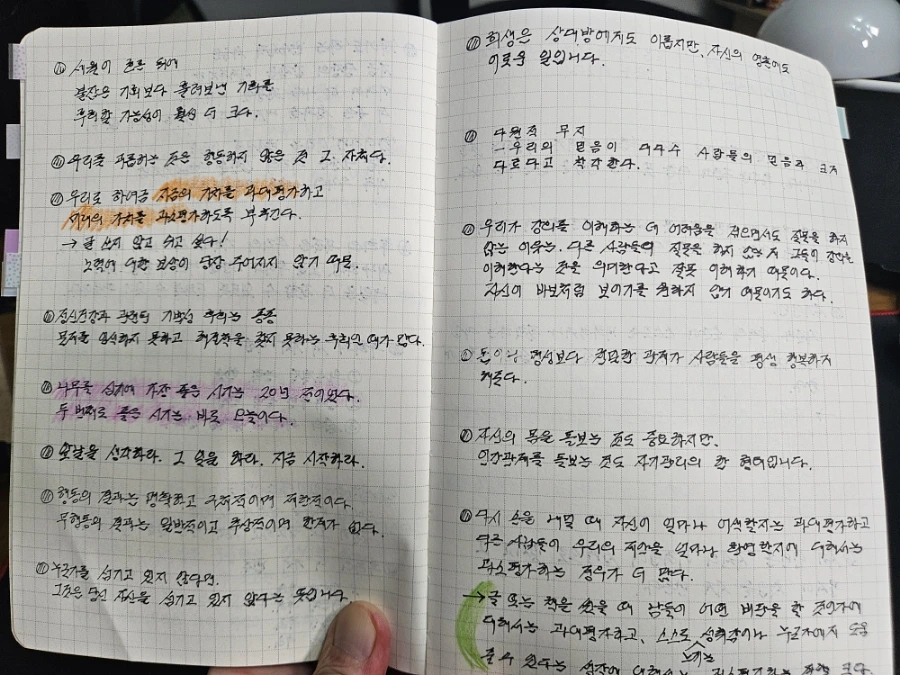 세월이 흐른 뒤에
잘잡은 기회보다 흘려보낸 기회를
후회할 가능성이 훨씬 더 크다.
우리를 괴롭히는 것은 행동하지 않은 것 그 자체다.
우리로 하여금 지금의 가치를 과대평가하고
미래의 가치를 과소평가하도록 부추긴다.
→ 글 쓰지 않고 쉬고 싶다!
노력에 대한 보상이 당장 주어지지 않기 때문.
정신건강과 관련된 기반성 후회는 종종
문제를 인식하지 못하고 해결책을 찾지 못하는 후회인 때가 많다.
나무를 심기에 가장 좋은 시기는 20년 전이었다.
두 번째로 좋은 시기는 바로 오늘이다.
훗날을 생각하라. 그 일을 하라. 지금 시작하라.
행동의 결과는 명확하고 구체적이며 제한적이다.
무행동의 결과는 일반적이고 추상적이며 한계가 없다.
누군가를 섬기고 있지 않다면,
그것은 당신 자신을 섬기고 있지 않다는 뜻입니다.
희생은 상대방에게도 이롭지만, 자신의 영혼에도
이로운 일입니다.
다원적 무지
- 우리의 믿음이 대다수 사람들의 믿음과 크게
다르다고 착각한다.
우리가 강의를 이해하는 데 어려움을 겪으면서도 질문을 하지
않는 이유는, 다른 사람들이 질문을 하지 않는 게 그들이 강의를
이해한다는 것을 의미한다고 잘못 이해하기 때문이다.
자신이 바보처럼 보이기를 원하지 않기 때문이기도 하다.
돈이나 명성보다 친밀한 관계가 사람들을 평생 행복하게
해준다.
자신의 몸을 돌보는 것도 중요하지만,
인간관계를 돌보는 것도 자기관리의 한 형태입니다.
다시 손을 내밀 때 자신이 얼마나 어색할지는 과대평가하고
다른 사람들이 우리의 제안을 얼마나 환영할지에 대해서는
과소평가하는 경우가 더 많다.
→ 글 또는 책을 썼을 때 남들이 어떤 비판을 할 것인가에
대해서는 과대평가하고, 스스로 성취감이나 누군가에게 도움
느끼는
줄 수 있다는 생각에 대해서는 과소평가하는 경향 크다.